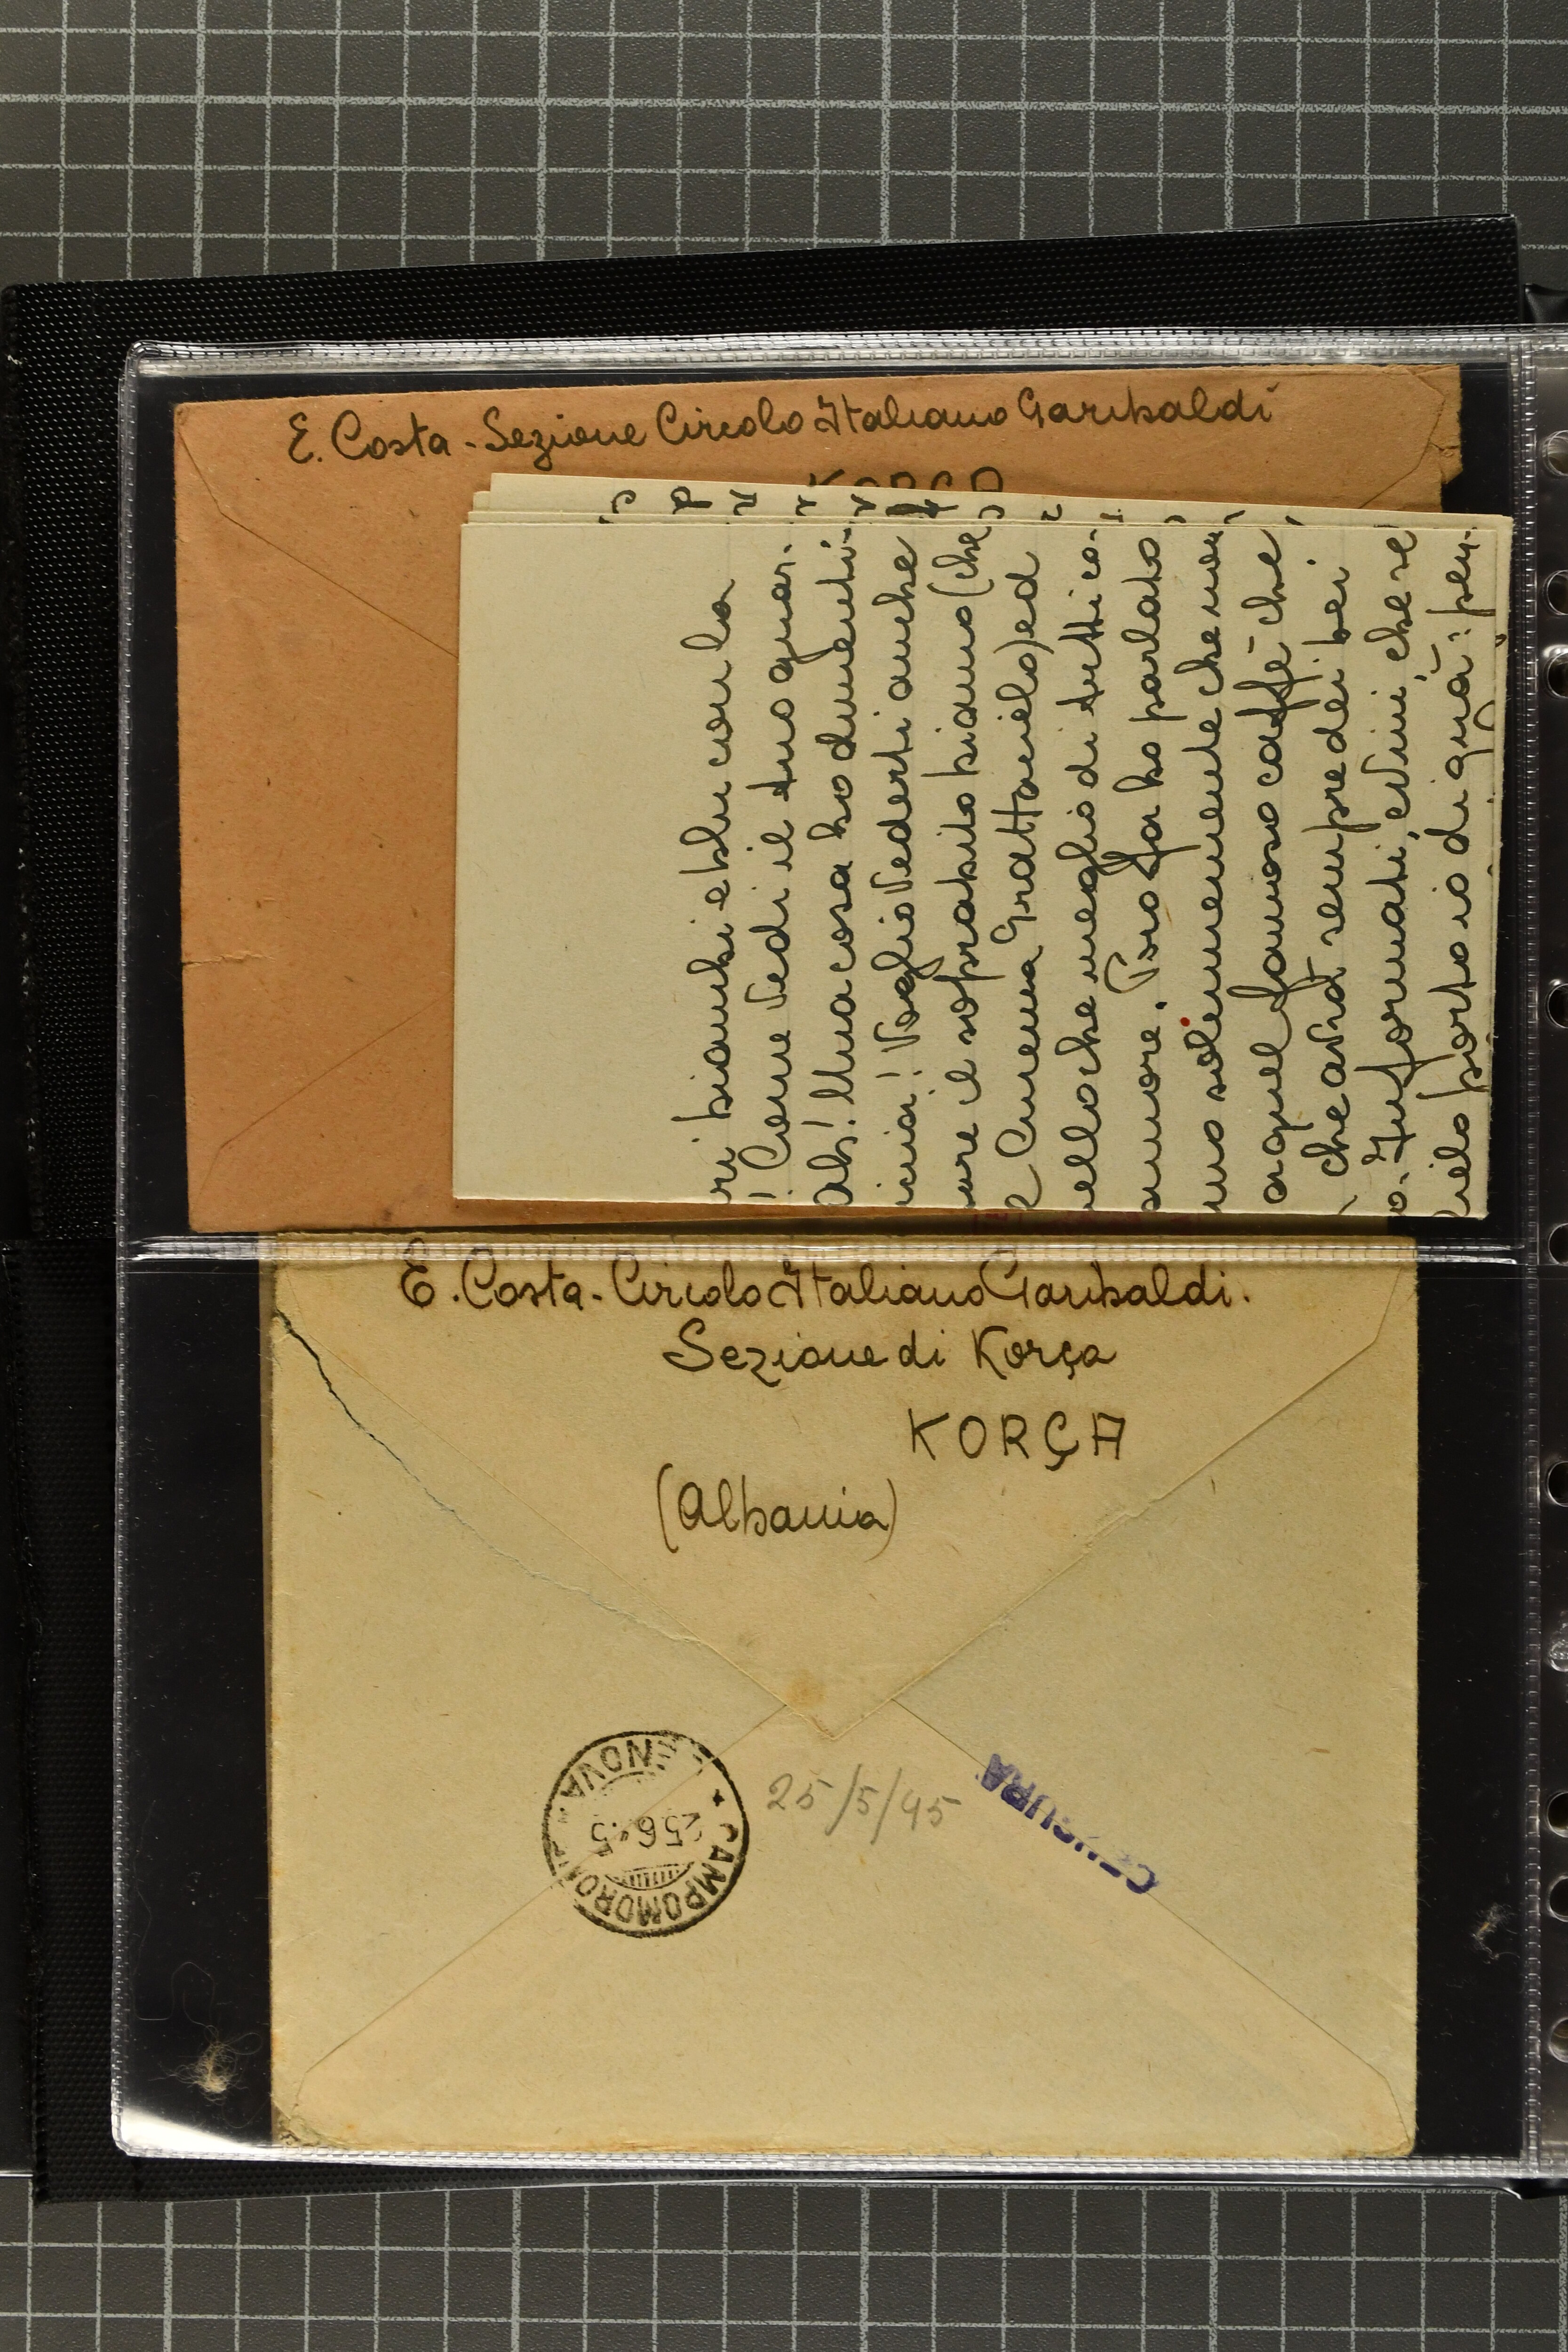 E. Costa - Sezione Circolo Italiano Garibaldi
KORÇA
ri bianchi e blu con la
! Come vedi il tuo guar-
Ah! Una cosa ho dimenti-
! Voglio vederti anche
il soprabito bianco (che
Cinema Grattacielo) ed
che meglio di tutti co-
. Tuo ho parlato
solennemente che non
quel famoso caffè che
che avrà sempre dei bei
o. Informati, e vini, che se
lo porto io di qua: per.
E. Costa - Circolo Italiano Garibaldi.
Sezione di Korça
KORÇA
(Albania)
CAMPOMORONE * GENOVA
25/5/45
CENSURA